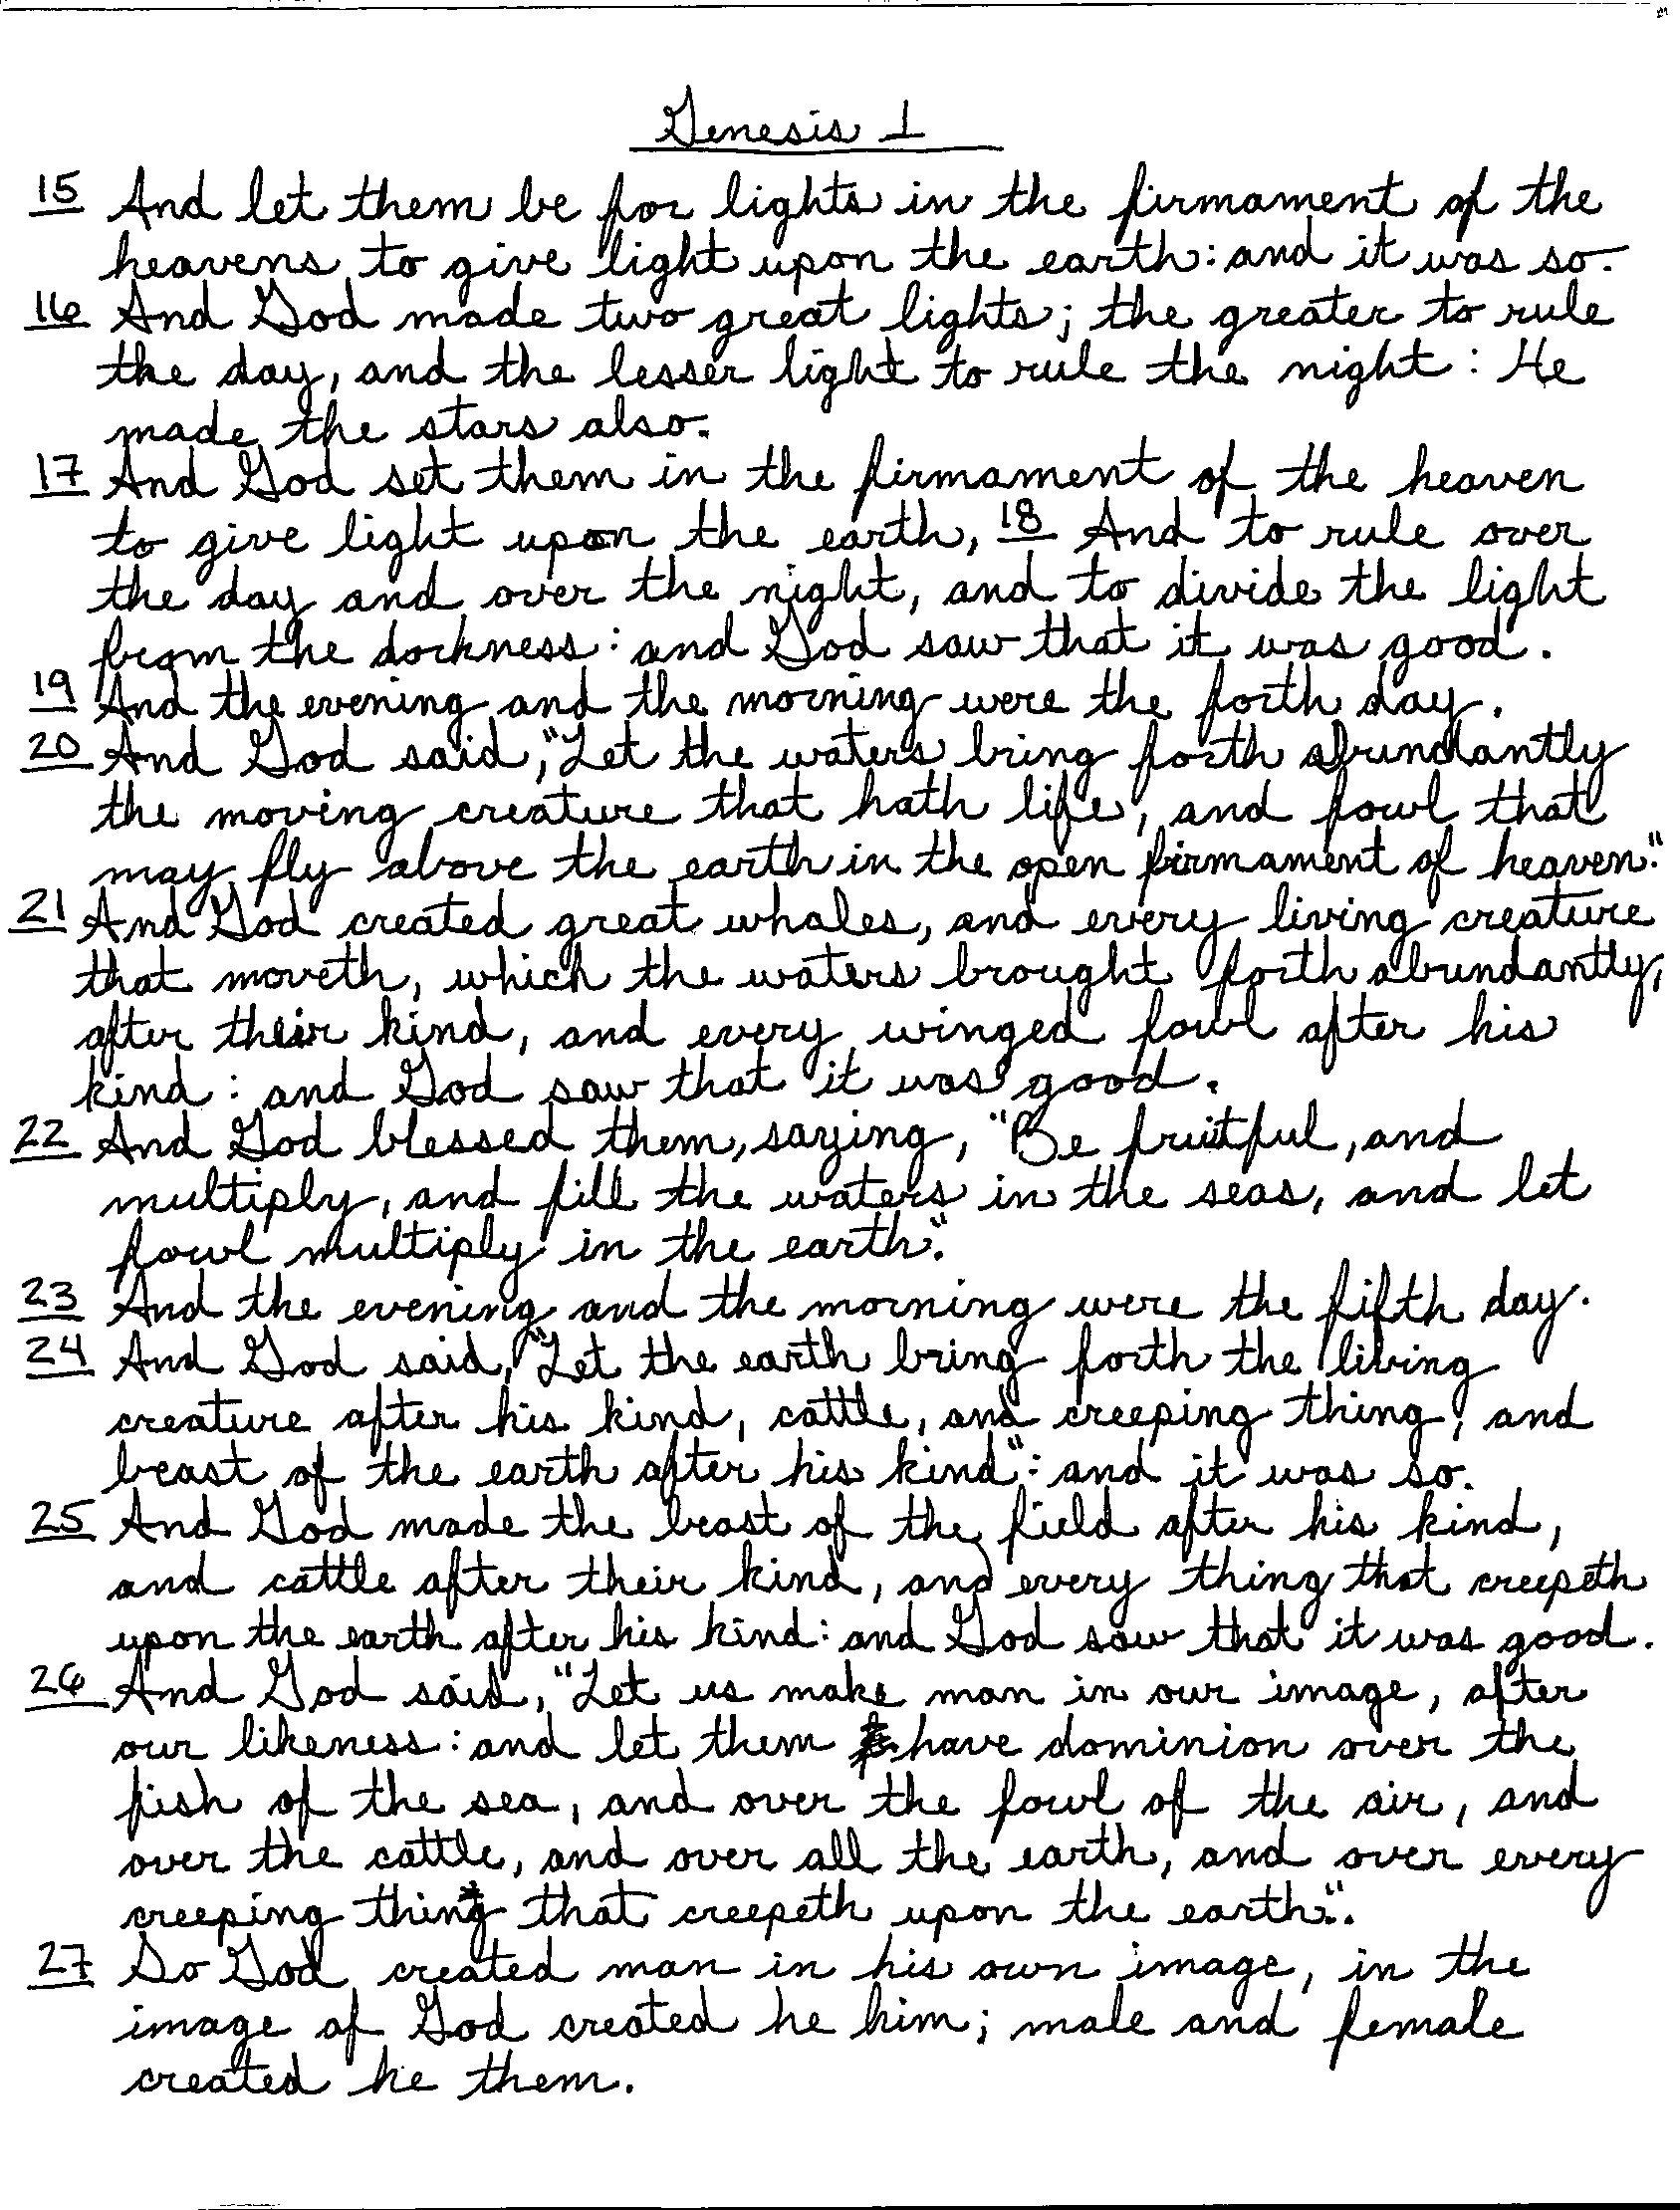 Genesis 1
15 And let them be for lights in the firmament of the
heavens to give light upon the earth: and it was so.
16 And God made two great lights; the greater to rule
the day, and the lesser light to rule the night: He
made the stars also.
17 And God set them in the firmament of the heaven
to give light upon the earth, 18 And to rule over
the day and over the night, and to divide the light
from the darkness: and God saw that it was good.
19 And the evening and the morning were the forth day.
20 And God said, "Let the waters bring forth abundantly
the moving creature that hath life, and fowl that
may fly above the earth in the open firmament of heaven."
21 And God created great whales, and every living creature
that moveth, which the waters brought forth abundantly,
after their kind, and every winged fowl after his
kind: and God saw that it was good.
22 And God blessed them, saying, "Be fruitful, and
multiply, and fill the waters in the seas, and let
fowl multiply in the earth."
23 And the evening and the morning were the fifth day.
24 And God said, "Let the earth bring forth the living
creature after his kind, cattle, and creeping thing, and
beast of the earth after his kind": and it was so.
25 And God made the beast of the field after his kind,
and cattle after their kind, and every thing that creepeth
upon the earth after his kind: and God saw that it was good.
26 And God said, "Let us make man in our image, after
our likeness: and let them have dominion over the
fish of the sea, and over the fowl of the air, and
over the cattle, and over all the earth, and over every
creeping thing that creepeth upon the earth.".
27 So God created man in his own image, in the
image of God created he him; male and female
created he them.